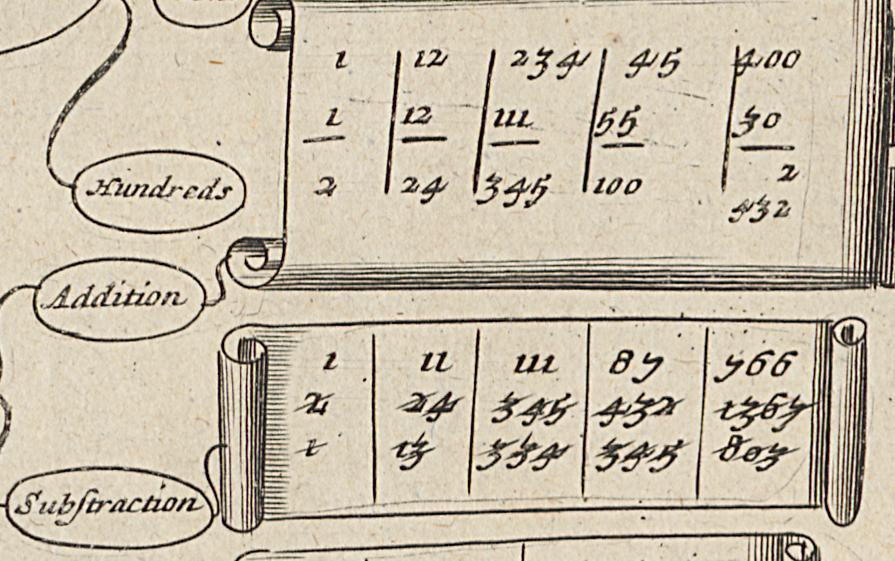 Hundreds
Addition
1 12 234 45 400
1 12 111 55 30
2 24 345 100 2
432
Subſtraction
1 11 111 87 766
2 24 345 432
1 13 345 803